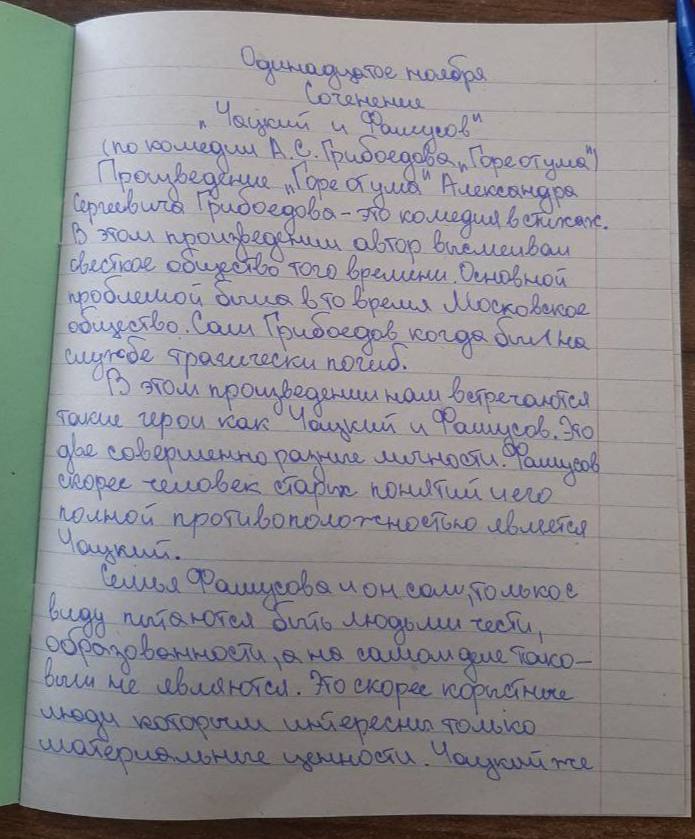 Одинадцатое ноября
Соченение
„Чацкий и Фамусов"
(по комедии А.С. Грибоедова „Горе от ума")
Произведение „Горе от ума" Александра
Сергеевича Грибоедова - это комедия в стихах.
В этом произведении автор высмеивал
свесткое общество того времени. Основной
проблемой была в то время Московское
общество. Сам Грибоедов когда был на
службе трагически погиб.
В этом произведении нам встречаются
такие герои как Чацкий и Фамусов. Это
две совершенно разные личности. Фамусов
скорее человек старых понятий и его
полной противоположностью является
Чацкий.
Семья Фамусова и он сам, только с
виду пытаются быть людьми чести,
образованности, а на самом деле тако-
выми не являются. Это скорее корыстные
люди которым интересны только
материальные ценности. Чацкий же